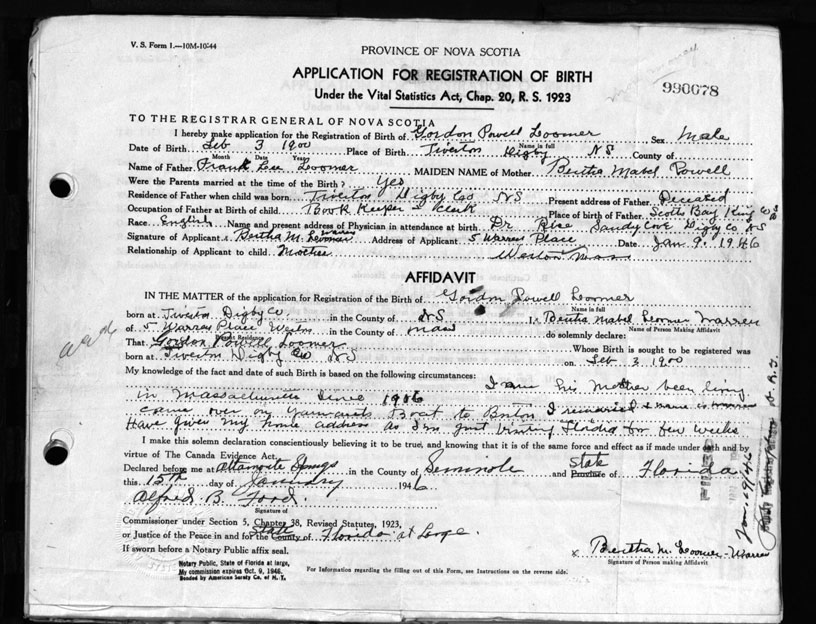 V. S. Form 1.—10M-10-44
PROVINCE OF NOVA SCOTIA
APPLICATION FOR REGISTRATION OF BIRTH
990678
Under the Vital Statistics Act, Chap. 20, R. S. 1923
TO THE REGISTRAR GENERAL OF NOVA SCOTIA
I hereby make application for the Registration of Birth of Gordon Powell Loomer Sex Male
Name in full
Date of Birth Feb 3 1900 Place of Birth Tiverton Digby NS County of
Month Date Year
Name of Father Frank Lee Loomer MAIDEN NAME of Mother Bertha Mabel Powell
Were the Parents married at the time of the Birth? Yes
Residence of Father when child was born Tiverton Digby Co NS Present address of Father Deceased
Occupation of Father at Birth of child Book Keeper & Clerk Place of birth of Father Scots Bay King Co NS
Race English Name and present address of Physician in attendance at birth Dr Rice Sandy Cove Digby Co NS
Signature of Applicant Bertha M. Loomer Warren Address of Applicant 5 Warren Place Date Jan 9. 1946
Relationship of Applicant to child Mother Weston Mass
AFFIDAVIT
IN THE MATTER of the application for Registration of the Birth of Gordon Powell Loomer
Name in full
born at Tiverton Digby Co. in the County of NS I, Bertha Mabel Loomer Warren
Name of Person Making Affidavit
of 5 Warren Place Weston in the County of Mass do solemnly declare:
Present Residence
That Gordon Powell Loomer Whose Birth is sought to be registered was
born at Tiverton Digby Co NS on Feb 3 1900
My knowledge of the fact and date of such Birth is based on the following circumstances: I am his Mother been living
in Massachusetts since 1906
came over on Yarmouth Boat to Boston I remarried & name is Warren
Have given my home address as I'm just visiting Florida for few weeks
I make this solemn declaration conscientiously believing it to be true, and knowing that it is of the same force and effect as if made under oath and by
virtue of The Canada Evidence Act.
Declared before me at Altamonte Springs in the County of Seminole and State Province of Florida
this 15th day of January 1946.
Alfred B. Ford.
Signature of
Commissioner under Section 5, Chapter 38, Revised Statutes, 1923,
or Justice of the Peace in and for the State County of Florida at Large.
If sworn before a Notary Public affix seal.
x Bertha M. Loomer-Warren
Signature of Person making Affidavit
Notary Public, State of Florida at large,
My commission expires Oct. 9, 1946.
Bonded by American Surety Co. of N. Y.
For Information regarding the filling out of this Form, see Instructions on the reverse side.